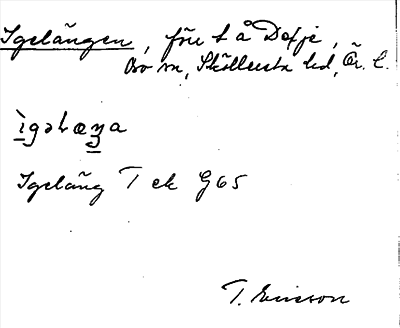 Igelängen, förr t å Defje,
Bo sn, Sköllersta hd, Ör. l.
ìgəLæŋa
Igeläng T ek G65
T. Ericsson